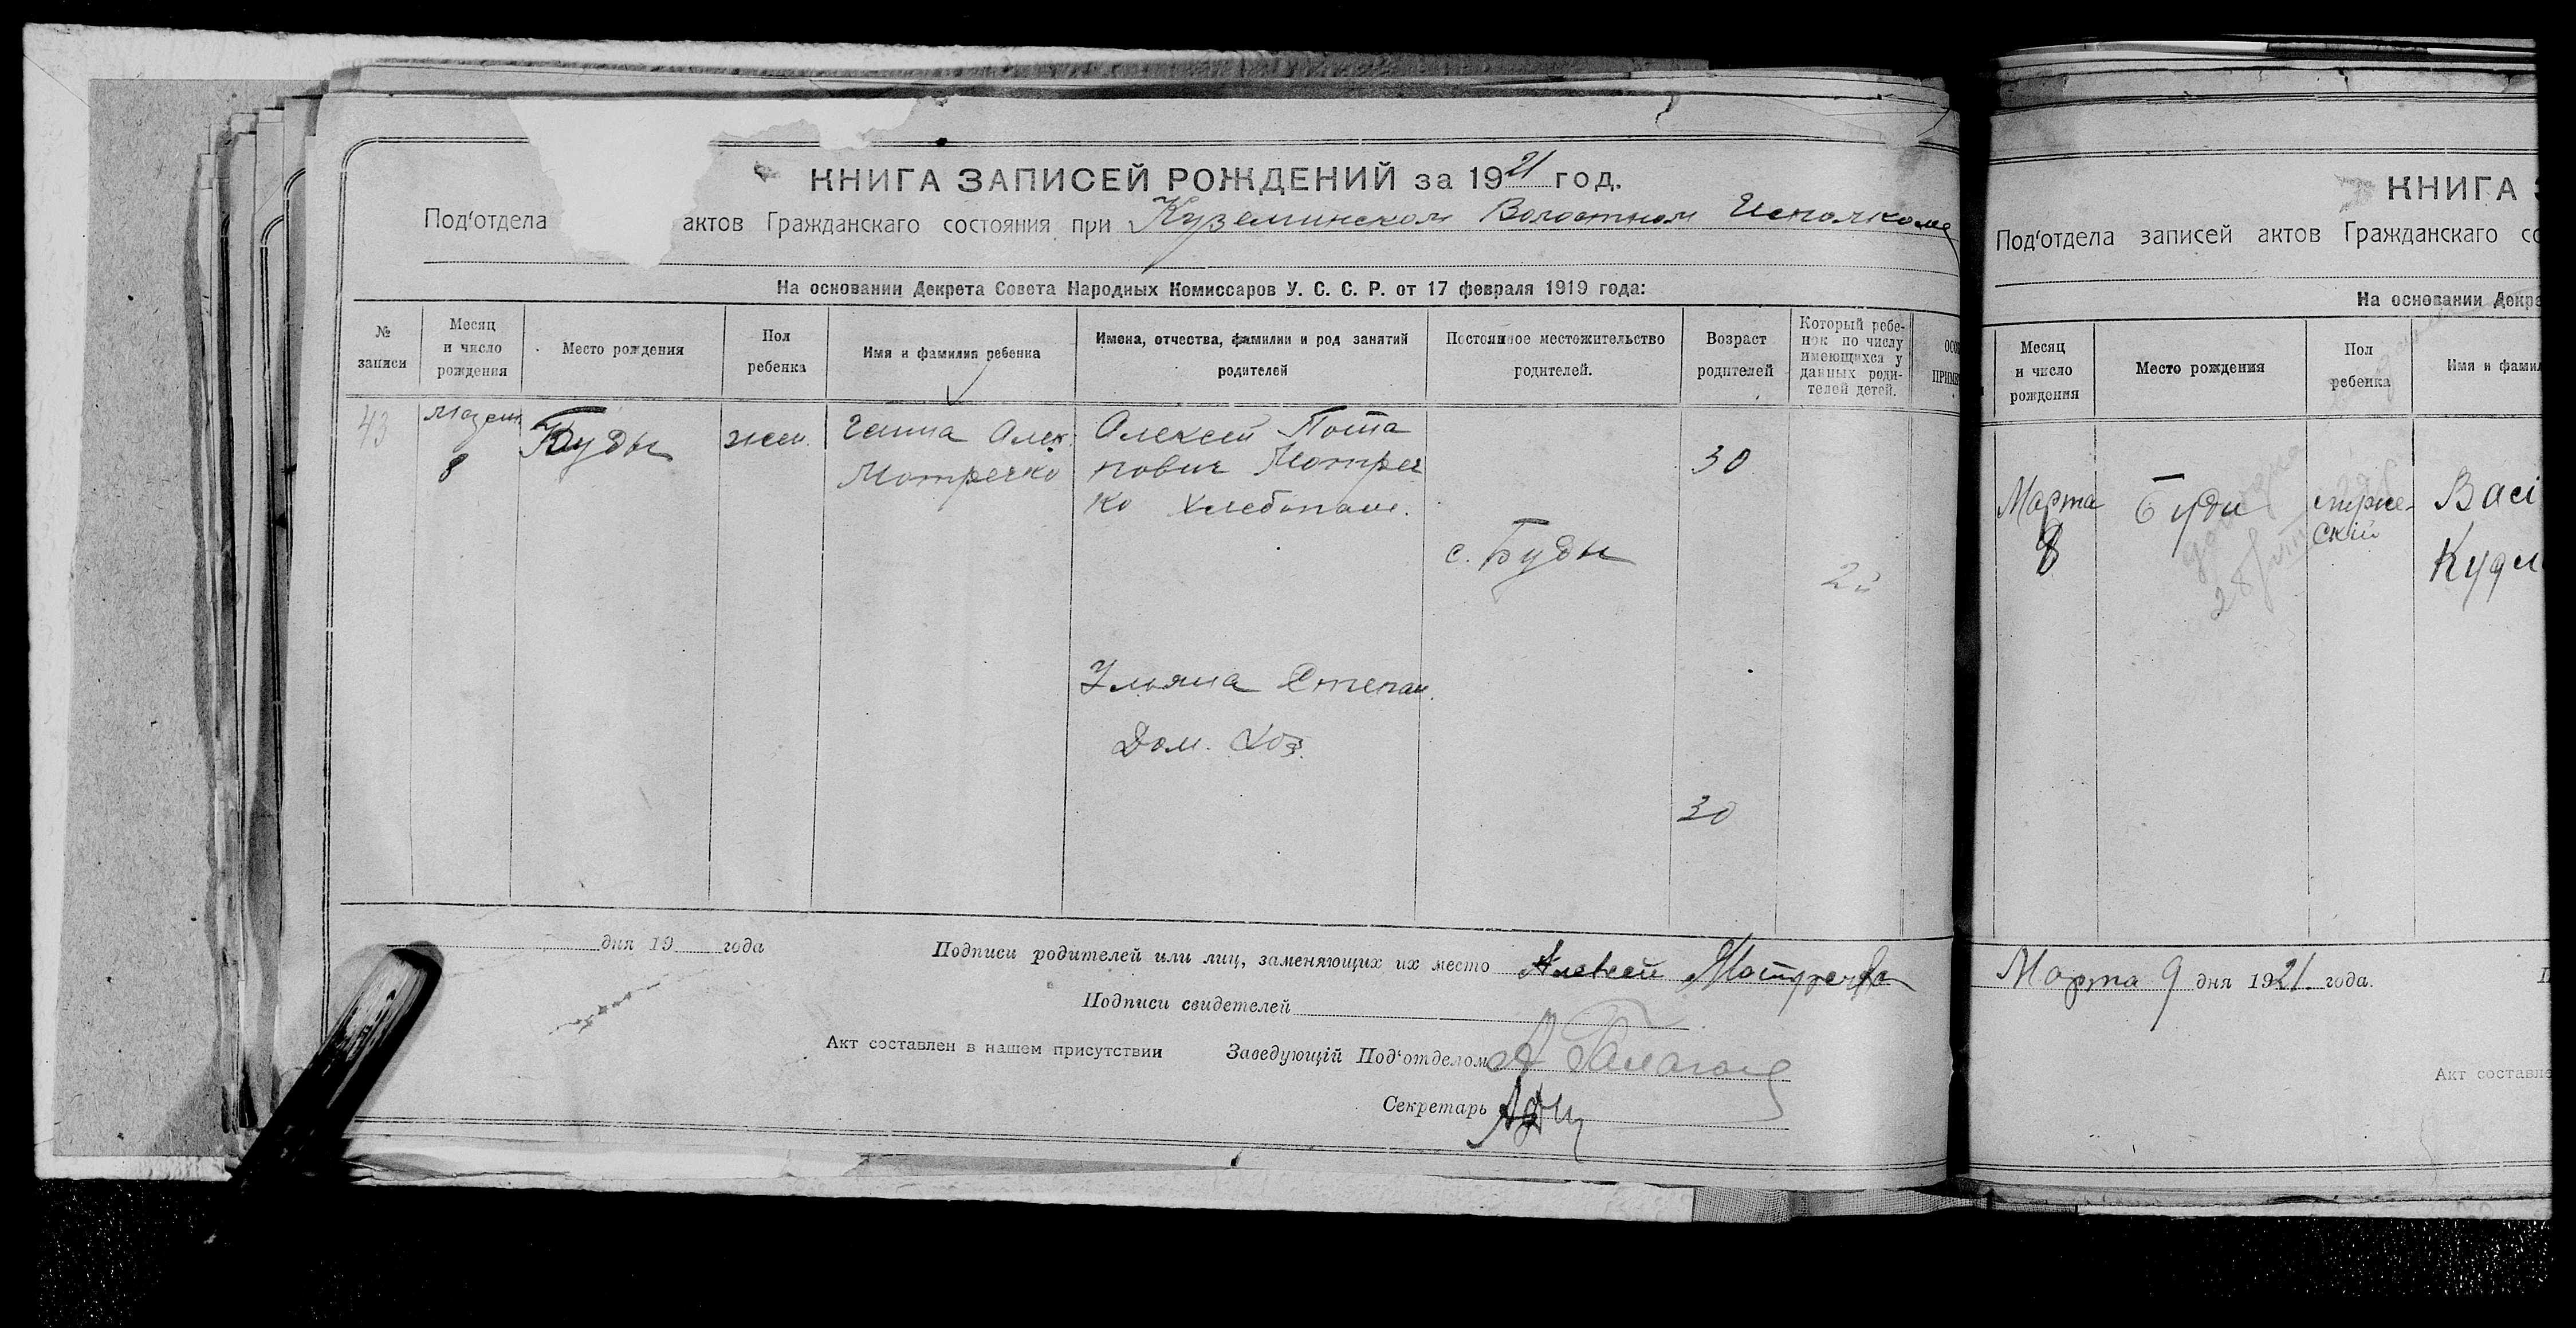 КНИГА ЗАПИСЕЙ РОЖДЕНИЙ за 1921 год.
Под'отдела актов Гражданскаго состояния при Куземинском Волостном Исполкоме
На основании Декрета Совета Народных Комиссаров У. С. С. Р. от 17 февраля 1919 года:
№ записи
Месяц и число рождения
Место рождения
Пол ребенка
Имя и фамилия ребенка
Имена, отчества, фамилии и род занятий родителей
Постоянное местожительство родителей.
Возраст родителей
Который ребенок по числу имеющихся у данных родителей детей.
43
8
Буды
жен.
Ганна Алек.
Мотречко
Алексей Пота
пович Мотреч
ко хлебопаш.
с. Буды
30
2й
Ульяна Степан.
Дом. Хоз.
30
дня 19 года
Подписи родителей или лиц, заменяющих их место Алексей Мотречко
Подписи свидетелей
Акт составлен в нашем присутствии Заведующій Под'отделом
Секретарь
КНИГА
Под'отдела записей актов Гражданскаго
На основании
Месяц и число рождения
Место рождения
Пол ребенка
Имя и
Марта
8
Буди
мужеский
Васі
Марта 9 дня 1921 года.
Акт